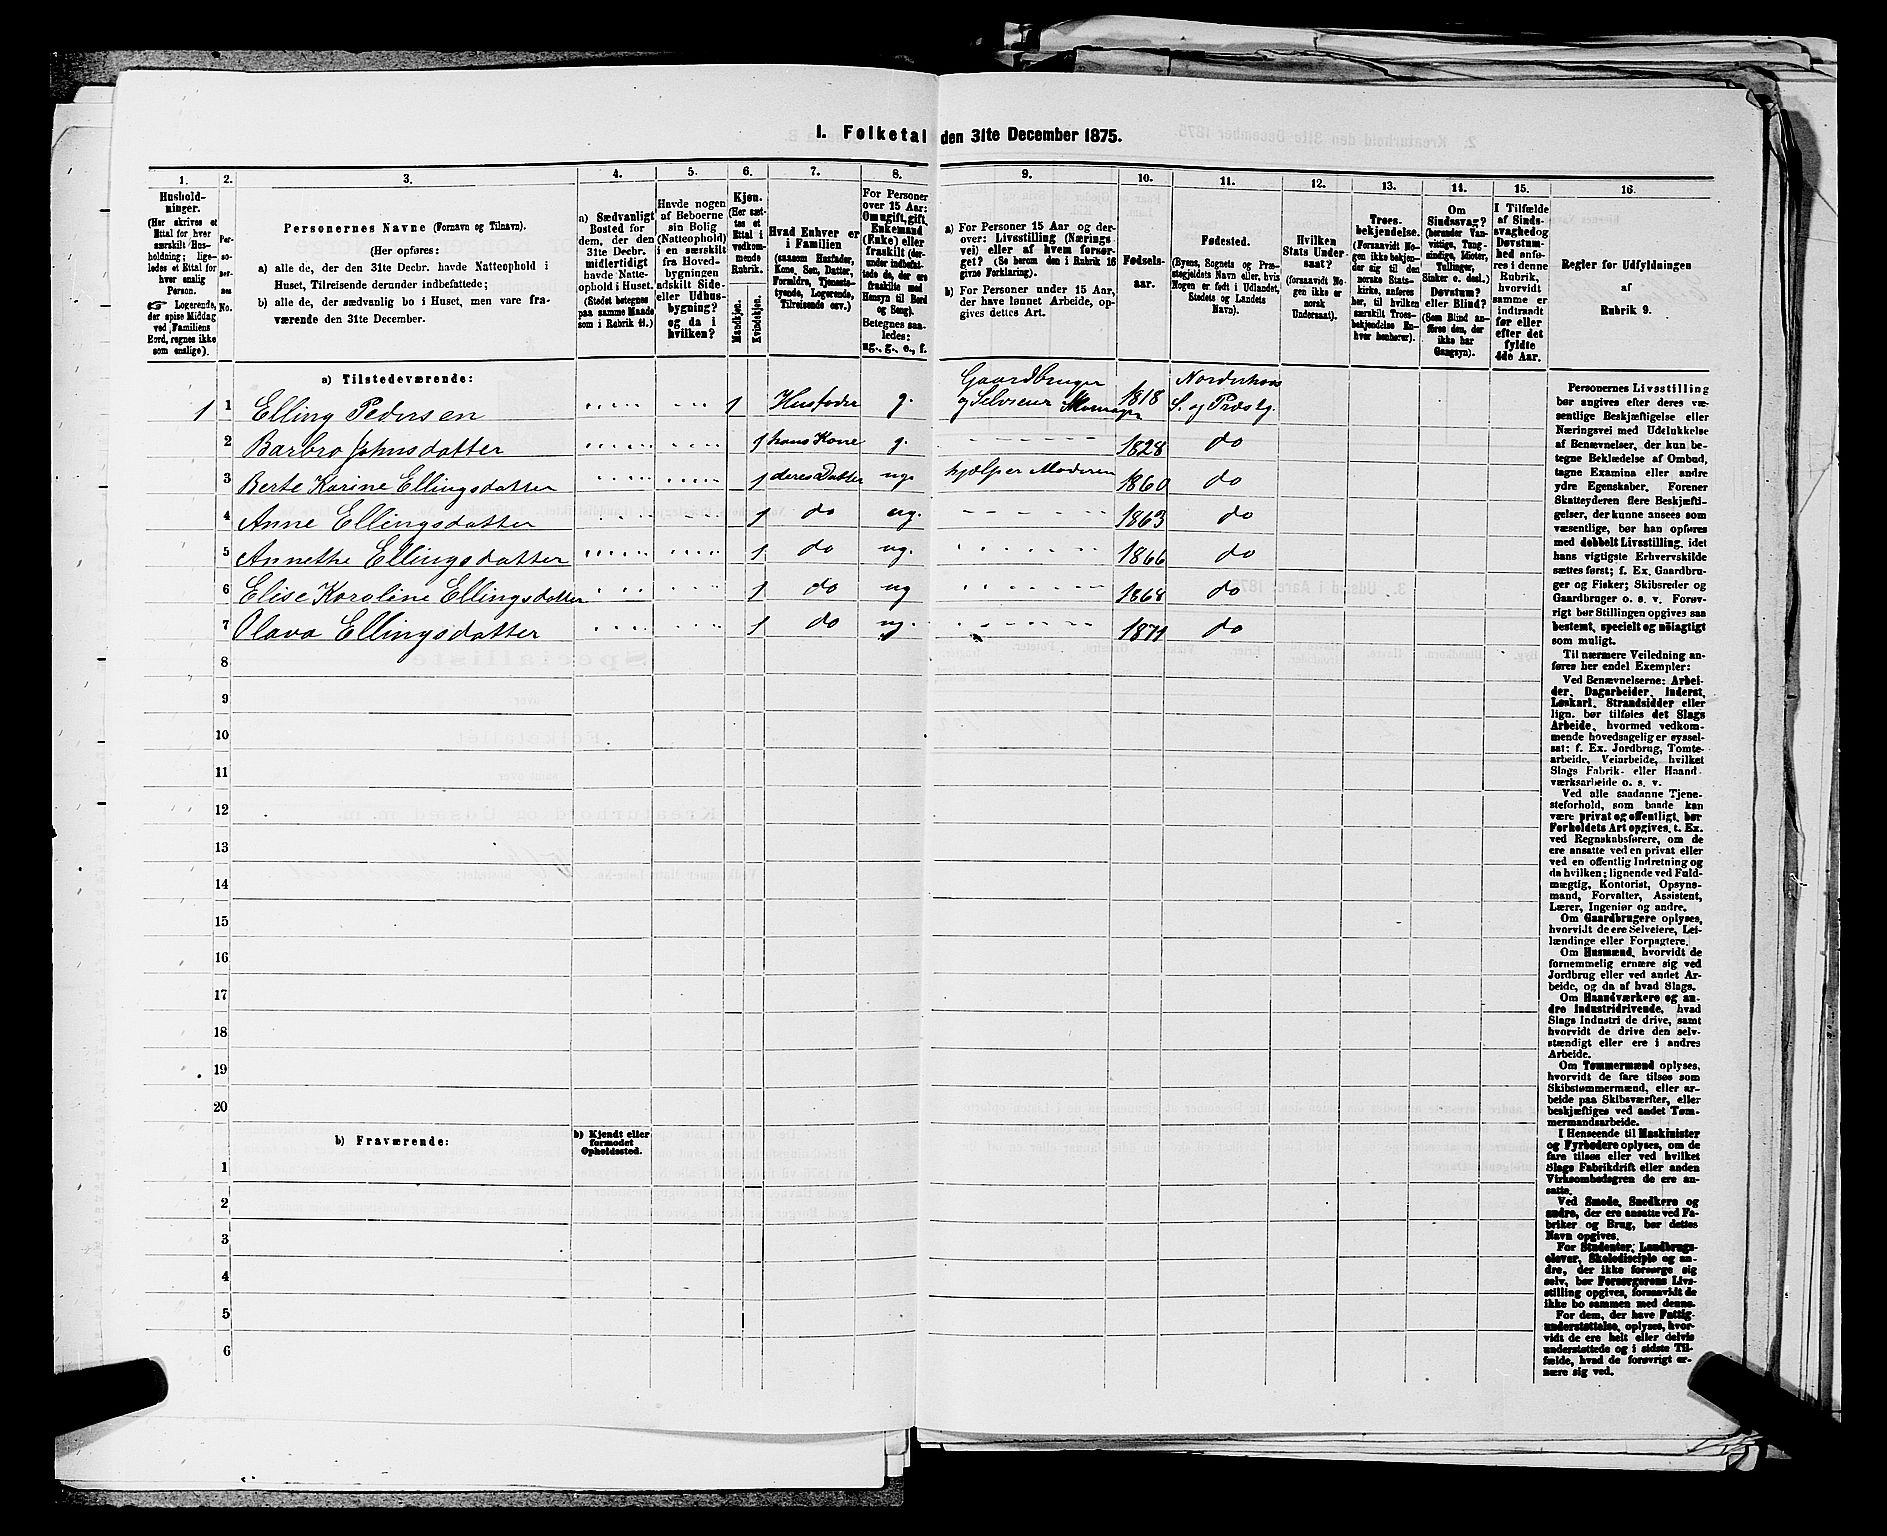 I. Folketal den 31te December 1875.
1.
Hushold-
ninger.
(Her skrives et
Ettal for hver
særskilt Hus-
holdning; lige-
ledes et Ettal for
hver enslig
Person.
☞ Logerende,
der spise Middag
ved Familiens
Bord, regnes ikke
som enslige).
2.
Per-
so-
ner-
nes
No.
3.
Personernes Navne (Fornavn og Tilnavn).
(Her opføres:
a) alle de, der den 31te Decbr. havde Natteophold i
Huset, Tilreisende derunder indbefattede;
b) alle de, der sædvanlig bo i Huset, men vare fra-
værende den 31te December.
4.
a) Sædvanligt
Bosted for
dem, der den
31te Decbr.
midlertidigt
havde Natte-
ophold i Huset.
(Stedet betegnes
paa samme Maade
som i Rubrik 11.)
5.
Havde nogen
af Beboerne
sin Bolig
(Natteophold)
i en særskilt
fra Hoved-
bygningen
adskilt Side-
eller Udhus-
bygning?
og da i
hvilken?
6.
Kjøn.
(Her sæt-
tes et
Ettal i
vedkom-
mende
Rubrik.
Mandkjøn.
Kvindekjøn.
7.
Hvad Enhver er
i Familien
(saasom Husfader,
Kone, Søn, Datter,
Forældre, Tjeneste-
tyende, Logerende,
Tilreisende osv.)
8.
For Personer
over 15 Aar:
Om ugift, gift,
Enkemand
(Enke) eller
fraskilt (der-
under indbefat-
tede de, der ere
fraskilte med
Hensyn til Bord
og Seng).
Betegnes saa-
ledes:
ug., g., e., f.
9.
a) For Personer 15 Aar og der-
over: Livsstilling (Nærings-
vei) eller af hvem forsør-
get? (Se herom den i Rubrik 16
givne Forklaring).
b) For Personer under 15 Aar,
der have lønnet Arbeide, op-
gives dettes Art.
10.
Fødsels-
aar.
11.
Fødested.
(Byens, Sognets og Præ-
stegjeldets Navn eller, hvis
Nogen er født i Udlandet,
Stedets og Landets
Navn).
12.
Hvilken
Stats Under-
saat?
(forsaavidt No-
gen ikke er
norsk
Undersaat).
13.
Troes-
bekjendelse.
(Forsaavidt No-
gen ikke bekjen-
der sig til den
norske Stats-
kirke, anføres
her, til hvilken
særskilt Troes-
bekjendelse En-
hver henhører).
14.
Om
Sindssvag?
(herunder Van-
vittige, Tung-
sindige, Idioter,
Tullinger,
Sinker o. desl.)
Døvstum?
eller Blind?
(Som Blind an-
føres den, der
ikke har
Gangsyn).
15.
I Tilfælde
af Sinds-
svaghed og
Døvstum-
hed anfø-
res i denne
Rubrik,
hvorvidt
samme er
indtraadt
før eller
efter det
fyldte
4de Aar.
16.
Regler for Udfyldningen
af
Rubrik 9.
a) Tilstedeværende:
1 1 Elling Pedersen 1 Husfader g. Gaardbruger og Selveier 1818 Norderhovs S. og Præstg.
2 Barbro Johnsdatter 1 hans Kone g. 1828 do
3 Berte Karine Ellingsdatter 1 deres Datter ug. hjælper Moderen 1860 do
4 Anne Ellingsdatter 1 do ug. 1863 do
5 Annethe Ellingsdatter 1 do ug. 1866 do
6 Elise Karoline Ellingsdatter 1 do ug 1868 do
7 Olava Ellingsdatter 1 do ug. 1871 do
8
9
10
11
12
13
14
15
16
17
18
19
20
b) Fraværende:
b) Kjendt eller
formodet
Opholdssted.
1
2
3
4
5
6
Personernes Livsstilling
bør angives efter deres væ-
sentlige Beskjæftigelse eller
Næringsvei med Udelukkelse
af Benævnelser, der kun be-
tegne Beklædelse af Ombud,
tagne Examina eller andre
ydre Egenskaber. Forener
Skatteyderen flere Beskjæfti-
gelser, der kunne ansees som
væsentlige, bør han opføres
med dobbelt Livsstilling, idet
hans vigtigste Erhvervskilde
sættes først; f. Ex. Gaardbru-
ger og Fisker; Skibsreder og
Gaardbruger o. s. v. Forøv-
rigt bør Stillingen opgives saa
bestemt, specielt og nöiagtigt
som muligt.
Til nærmere Veiledning an-
føres her endel Exempler:
Ved Benævnelserne: Arbei-
der, Dagarbeider, Inderst,
Løskarl, Strandsidder eller
lign. bør tilføies det Slags
Arbeide, hvormed vedkom-
mende hovedsagelig er syssel-
sat; f. Ex. Jordbrug, Tomte-
arbeide, Veiarbeide, hvilket
Slags Fabrik- eller Haand-
værksarbeide o. s. v.
Ved alle saadanne Tjene-
steforhold, som baade kan
være privat og offentligt, bør
Forholdets Art opgives, t. Ex.
ved Regnskabsførere, om de
ere ansatte ved en privat eller
ved en offentlig Indretning og
da hvilken; lignende ved Fuld-
mægtig, Kontorist, Opsyns-
mand, Forvalter, Assistent,
Lærer, Ingeniør og andre.
Om Gaardbrugere oplyses,
hvorvidt de ere Selveiere, Lei-
lændinge eller Forpagtere.
Om Husmænd, hvorvidt de
fornemmelig ernære sig ved
Jordbrug eller ved andet Ar-
beide, og da af hvad Slags.
Om Haandværkere og an-
dre Industridrivende, hvad
Slags Industri de drive, samt
hvorvidt de drive den selv-
stændigt eller ere i andres
Arbeide.
Om Tømmermænd oplyses,
hvorvidt de fare tilsøs som
Skibstømmermænd, eller ar-
beide paa Skibsværfter, eller
beskjæftiges ved andet Tøm-
mermandsarbeide.
I Henseende til Maskinister
og Fyrbødere oplyses, om de
fare tilsøs eller ved hvilket
Slags Fabrikdrift eller anden
Virksomhedsgren de ere an-
satte.
Ved Smede, Snedkere og
andre, der ere ansatte ved Fa-
briker og Brug, bør dettes
Navn opgives.
For Studenter, Landbrugs-
elever, Skoledisciple og an-
dre, der ikke forsørge sig
selv, bør Forsørgerens Livs-
stilling opgives, forsaavidt de
ikke bo sammen med denne.
For dem, der have Fattig-
understøttelse, oplyses, hvor-
vidt de ere helt eller delvis
understøttede og i sidste Til-
fælde, hvad de forøvrigt er-
nære sig ved.